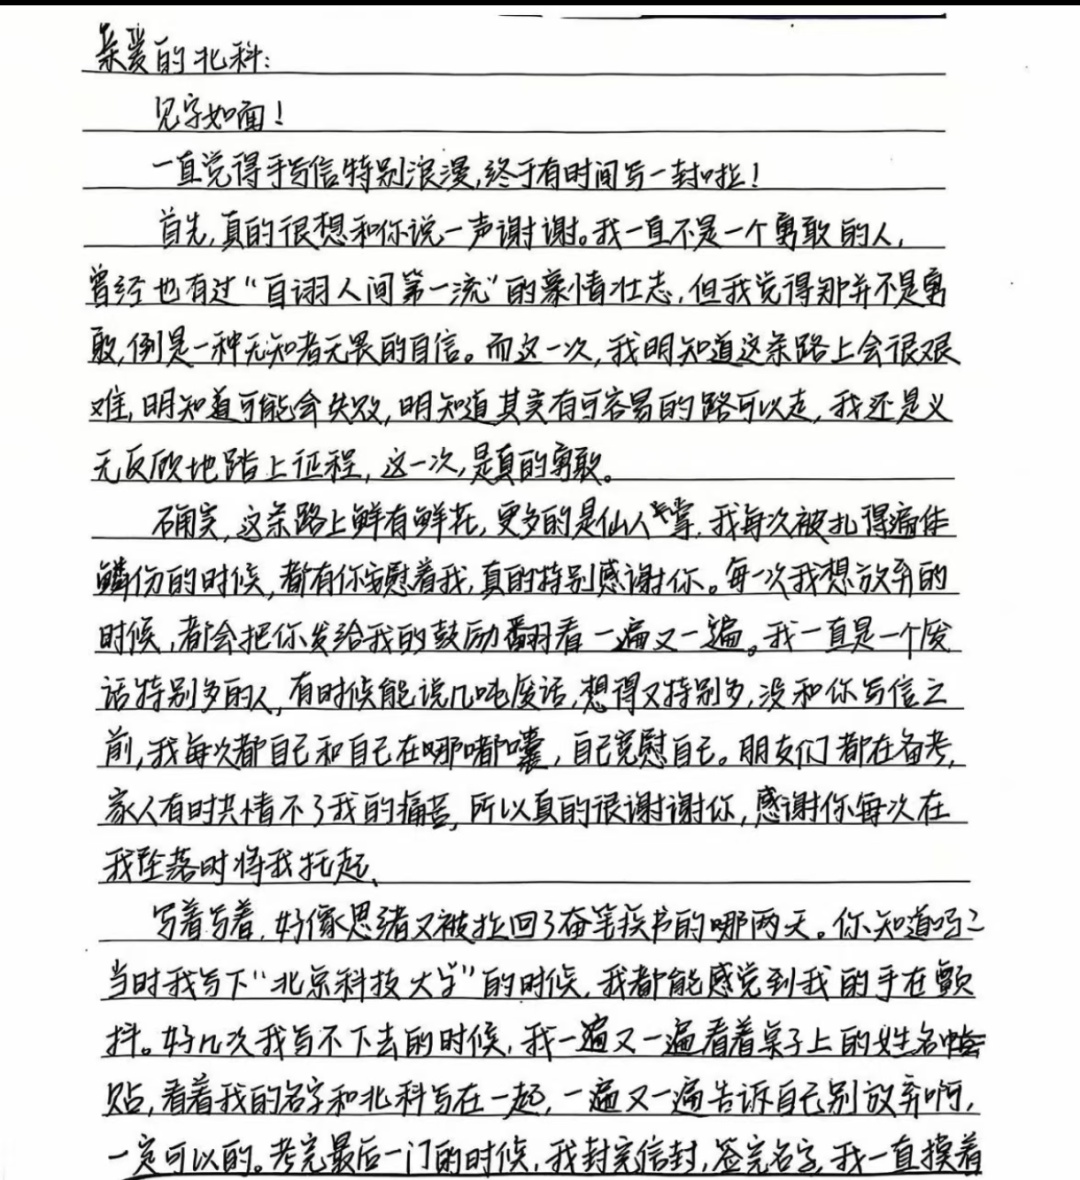 亲爱的北科:
见字如面!
一直觉得手写信特别浪漫,终于有时间写一封啦!
首先,真的很想和你说一声谢谢。我一直不是一个勇敢的人,
曾经也有过“自诩人间第一流”的豪情壮志,但我觉得那并不是勇
敢,倒是一种无知者无畏的自信。而这一次,我明知道这条路上会很艰
难,明知道可能会失败,明知道其实有可容易的路可以走,我还是义
无反顾地踏上征程,这一次,是真的勇敢。
确实,这条路上鲜有鲜花,更多的是仙人掌,我每次被扎得遍体
鳞伤的时候,都有你安慰着我,真的特别感谢你。每一次我想放弃的
时候,都会把你发给我的鼓励翻看一遍又一遍。我一直是一个废
话特别多的人,有时候能说几吨废话,想得又特别多,没和你写信之
前,我每次都自己和自己在哪嘟囔,自己宽慰自己。朋友们都在备考,
家人有时共情不了我的痛苦,所以真的很谢谢你,感谢你每次在
我坠落时将我托起、
写着写着,好像思绪又被拉回了奋笔疾书的哪两天。你知道吗?
当时我写下“北京科技大学”的时候,我都能感觉到我的手在颤
抖。好几次我写不下去的时候,我一遍又一遍看着桌子上的姓名
贴,看着我的名字和北科写在一起,一遍又一遍告诉自己别放弃啊,
一定可以的。考完最后一门的时候,我封完信封,签完名字,我一直摸着